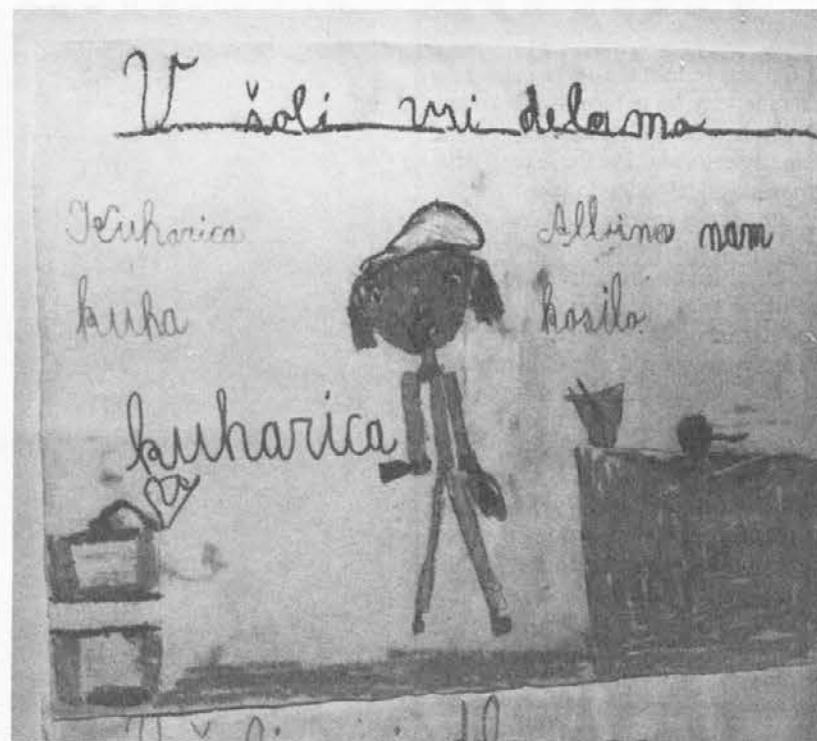 V šoli vsi delamo
Kuharica Albina nam
kuha kosilo
kuharica